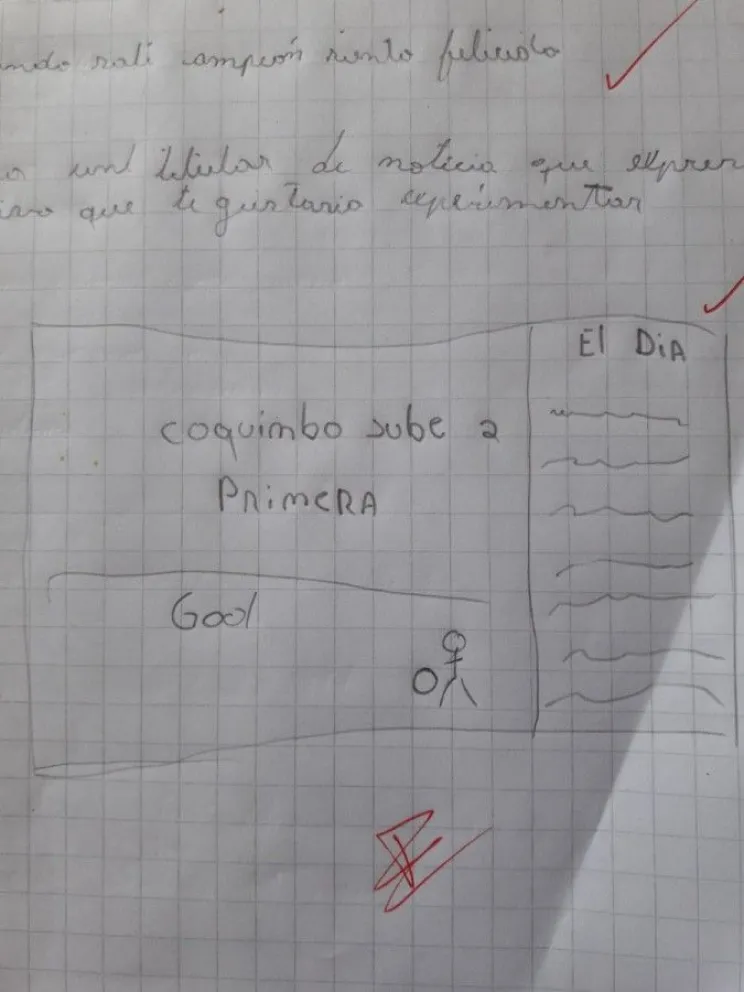 ndo sali campeón siento felicida
un titular de noticia que expres
que te gustaria experimentar
El DiA
coquimbo sube a
PRimeRA
Gool